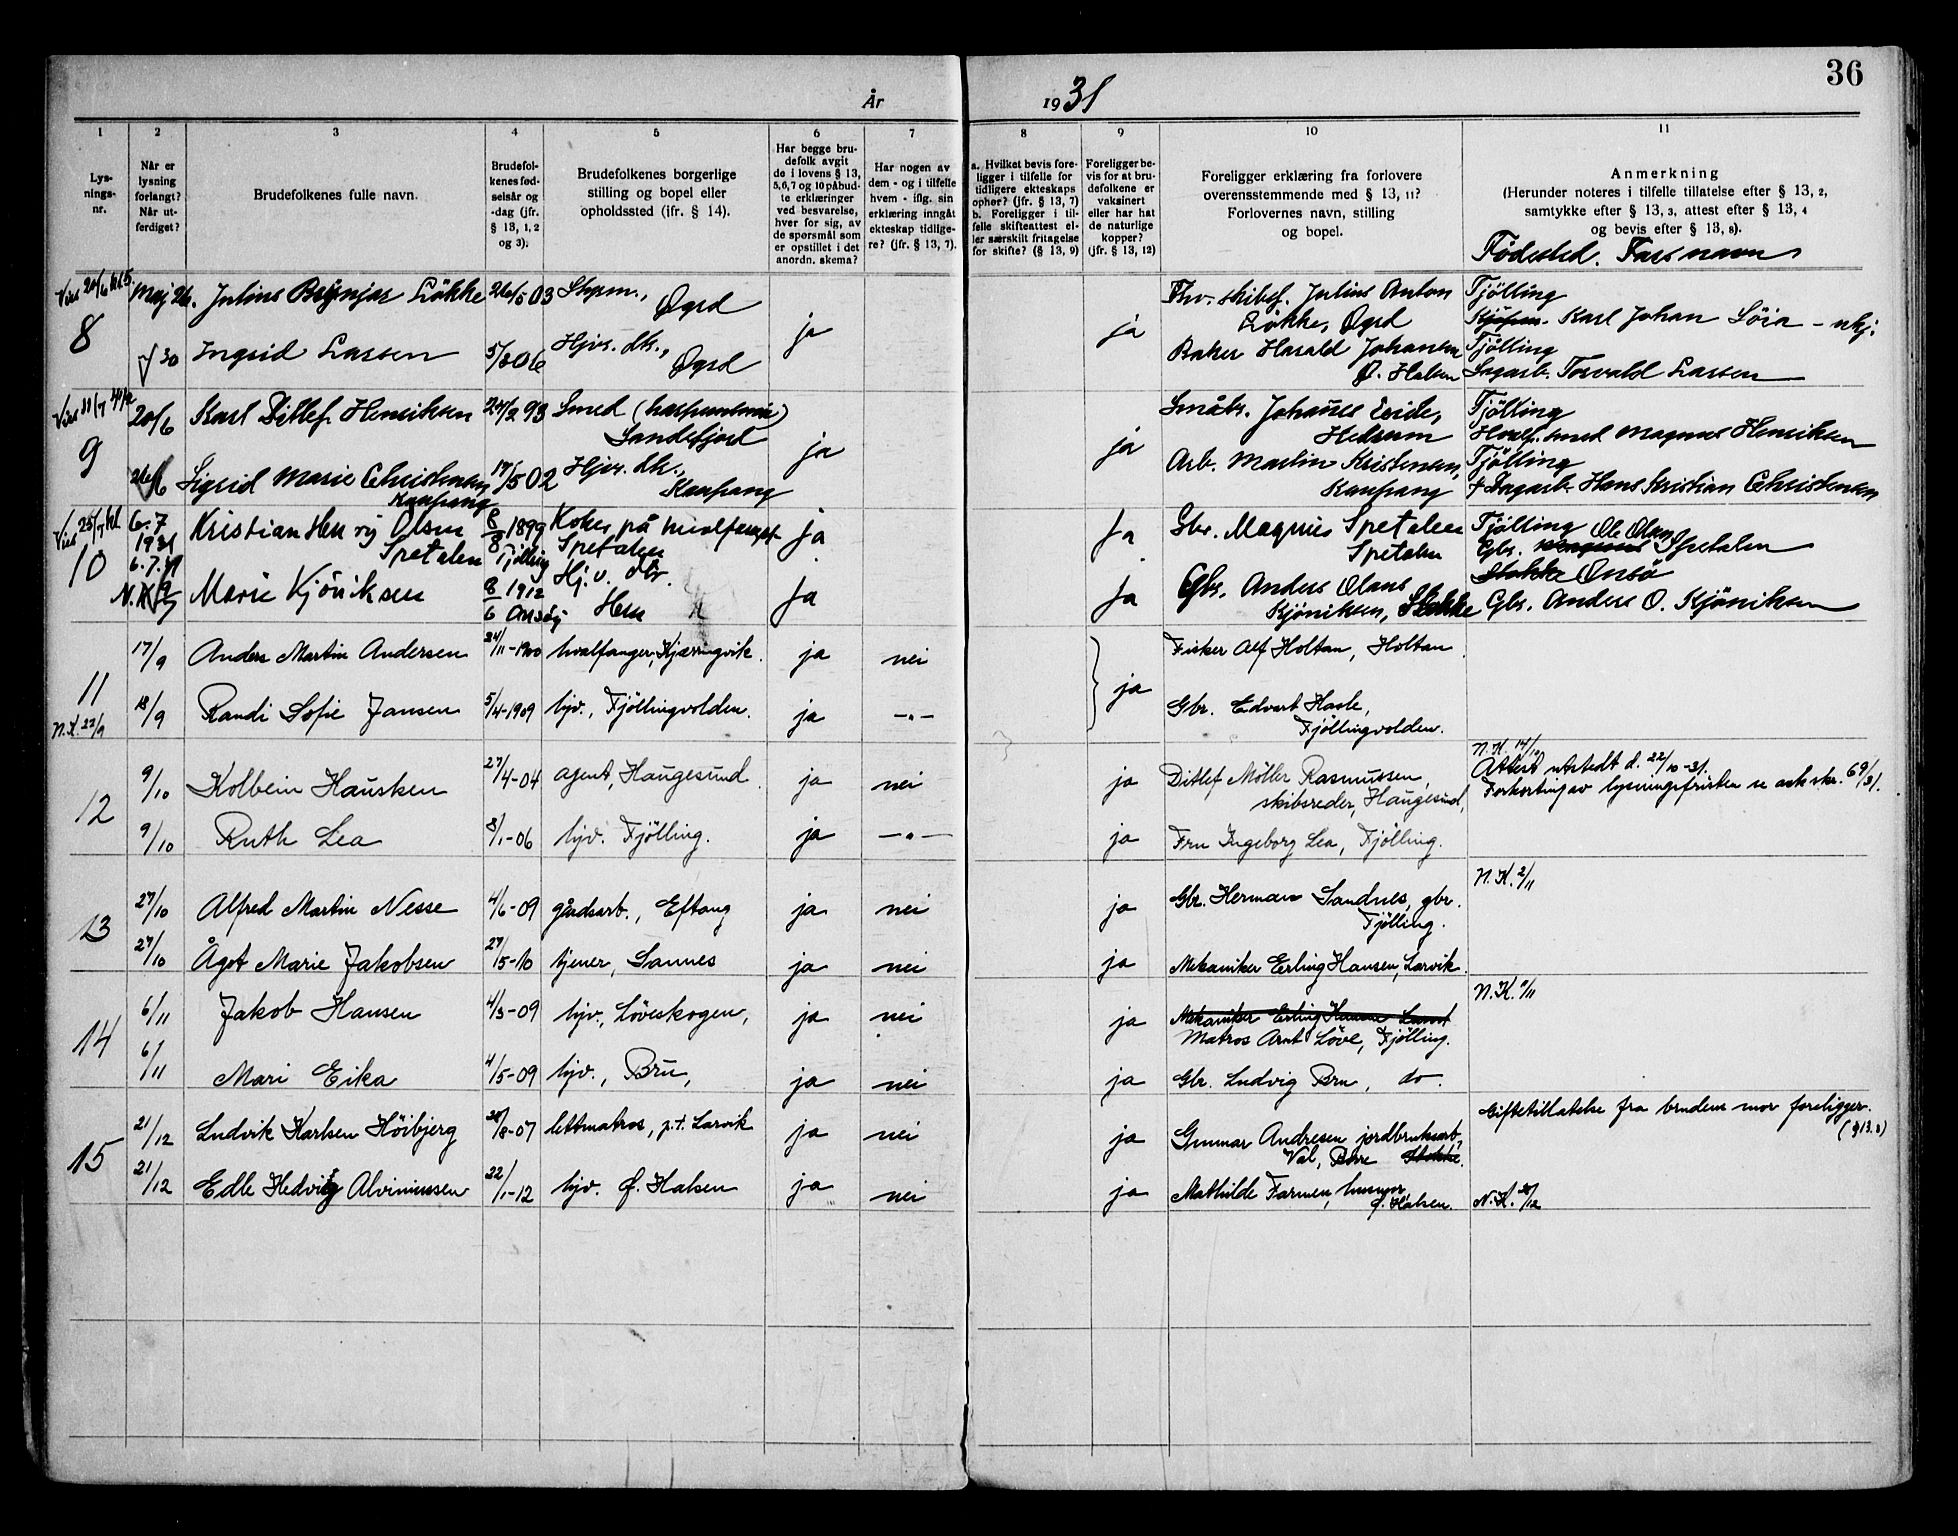 36
År 1931
1 2 3 4 5 6 7 8 9 10 11
Lys-
nings-
nr.
Når er
lysning
forlangt?
Når ut-
ferdiget?
Brudefolkenes fulle navn.
Brudefol-
kenes fød-
selsår og
-dag (jfr.
§ 13, 1, 2
og 3).
Brudefolkenes borgerlige
stilling og bopel eller
opholdssted (ifr. § 14).
Har begge bru-
defolk avgit
de i lovens § 13,
5,6,7 og 10 påbud-
te erklæringer
ved besvarelse,
hver for sig, av
de spørsmål som
er opstillet i det
anordn. skema?
Har nogen av
dem - og i tilfelle
hvem - iflg. sin
erklæring inngåt
ekteskap tidlige-
re? (jfr. § 13, 7).
a. Hvilket bevis fore-
ligger i tilfelle for
tidligere ekteskaps
ophør? (jfr. § 13, 7)
b. Foreligger i til-
felle skifteattest el-
ler særskilt fritagelse
for skifte? (§ 13, 9)
Foreligger be-
vis for at bru-
defolkene er
vaksinert
eller har hat
de naturlige
kopper?
(jfr. § 13, 12)
Foreligger erklæring fra forlovere
overensstemmende med § 13, 11?
Forlovernes navn, stilling
og bopel.
Anmerkning
(Herunder noteres i tilfelle tillatelse efter § 13, 2,
samtykke efter § 13, 3, attest efter § 13, 4
og bevis efter § 13, 8).
Fødested. Fars navn
Viet 20/6 kl 5
8
Maj 26. Julius Brynjar Løkke 26/5 03 Styrm., Øgrd ja
30 Ingrid Larsen 5/8 06 Hjv. dtr., Øgrd
ja skibsf. Julius Anton Tjølling
Løkke, Øgrd Karl Johan Löia
Baker Harald Johansen Tjølling
Ø. Halsen Torvald Larsen
Viet 11/7
9
20/6 Karl Ditlef Henriksen 24/2 93 Smed
Sandefjord ja
Sigrid Marie Christensen 17/5 02 Hjv. dtr.
Kaupang Kaupang
ja Småbr. Johannes Eside, Tjølling
Hedrum smed Magnus Henriksen
Arb. Martin Kristensen, Tjølling
Kaupang Hans Kristian Christensen
Viet 25/7 kl
10
6.7 1931 Kristian Henry Olsen 8/8 1899 Kokk på hvalfangst ja
6.7.31 Spetalen Tjølling Spetalen
N.K. Marie Kjöniksen 8/6 1912 Onsöy Hj. v. dtr. Hem ja
ja Gbr. Magnus Spetalen Tjölling Ole Olsen
Spetalen Gbr. Magnus Spetalen
Stokke Onsö
ja Gbr. Anders Olaus
Kjöniksen, Stokke Gbr. Anders O. Kjöniksen
11
17/9 Anders Martin Andersen 24/11-1900 hvalfanger, Kjærringvik. ja nei
18/9 Randi Sofie Jansen 5/4-1909 hjv., Tjøllingvolden. ja -"-
N.K. 22/9
ja Fisker Alf Holtan, Holtan.
Gbr. Edvart Hasle,
Tjøllingvolden.
12
9/10 Kolbein Hausken 27/4-04 agent, Haugesund. ja nei
9/10 Ruth Lea 8/1-06 hjv. Tjølling. ja -"-
ja Ditlef Møller Rasmussen,
skibsreder, Haugesund,
ja Fru Ingeborg Lea, Tjølling.
N.K. 14/10
Attest utstedt d. 22/10-31.
Forkorting av lysningsfristen se ark skr. 69/31.
13
27/10 Alfred Martin Nesse 4/6-09 gårdsarb., Eftang ja nei
27/10 Ågot Marie Jakobsen 27/5-10 tjener, Sannes ja nei
ja Gbr. Herman Sandnes, gbr.
Tjølling.
ja Mekaniker Erling Hansen, Larvik.
N.K. 2/11
14
6/11 Jakob Hansen 4/3-09 hjv., Løveskogen, ja nei
6/11 Mari Eika 4/5-09 hjv., Bru, ja nei
ja Mekaniker Erling Hansen
Matros Arnt Løve, Tjølling.
ja Gbr. Ludvig Bru, do.
N.K. 9/11
15
21/12 Ludvik Karlsen Höibjerg 28/8-07 lettmatros, p.t. Larvik ja nei
21/12 Edle Hedvig Alvinussen 22/1-12 hjv. Ø. Halsen ja nei
ja Gunnar Andresen jordbruksarb.
Val, Borre Stokke.
ja Mathilde Farmen, husmor
Ø. Halsen.
Giftetillatelse fra brudens mor foreligger.
(§13.3)
N.K. /12